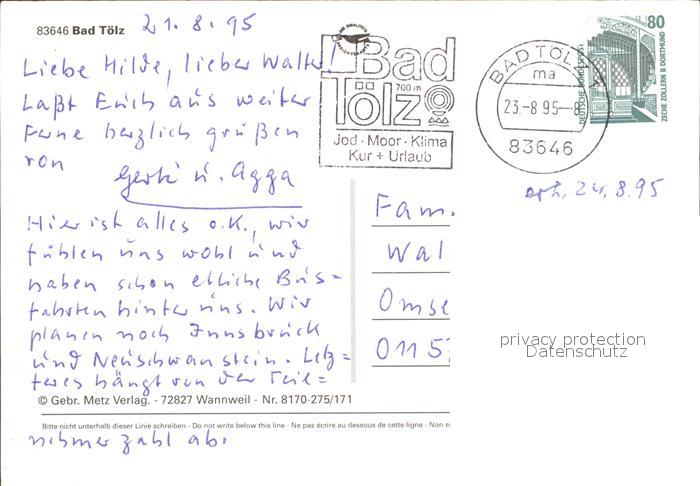 83646 Bad Tölz
21.8.95
Liebe Hilde, lieber Walter!
Laßt Euch aus weiter
Ferne herzlich grüßen
von
u. Agga
Hier ist alles o.K., wir
fühlen uns wohl und
haben schon etliche Bus=
fahrten hinter uns. Wir
planen noch Innsbruck
und Neuschwanstein. Letz=
teres hängt von der Teil=
© Gebr. Metz Verlag. - 72827 Wannweil - Nr. 8170-275/171
Bitte nicht unterhalb dieser Linie schreiben - Do not write below this line - Ne pas écrire au dessous de cette ligne - Non s
nehmerzahl ab.
Bad
Tölz
700 m
Jod · Moor · Klima
Kur + Urlaub
BAD TÖLZ
ma
23.-8 95--8
83646
80
DEUTSCHE BUNDESPOST
ZECHE ZOLLERN II DORTMUND
24.8.95
Fam.
Wal
Omse
0115
privacy protection
Datenschutz